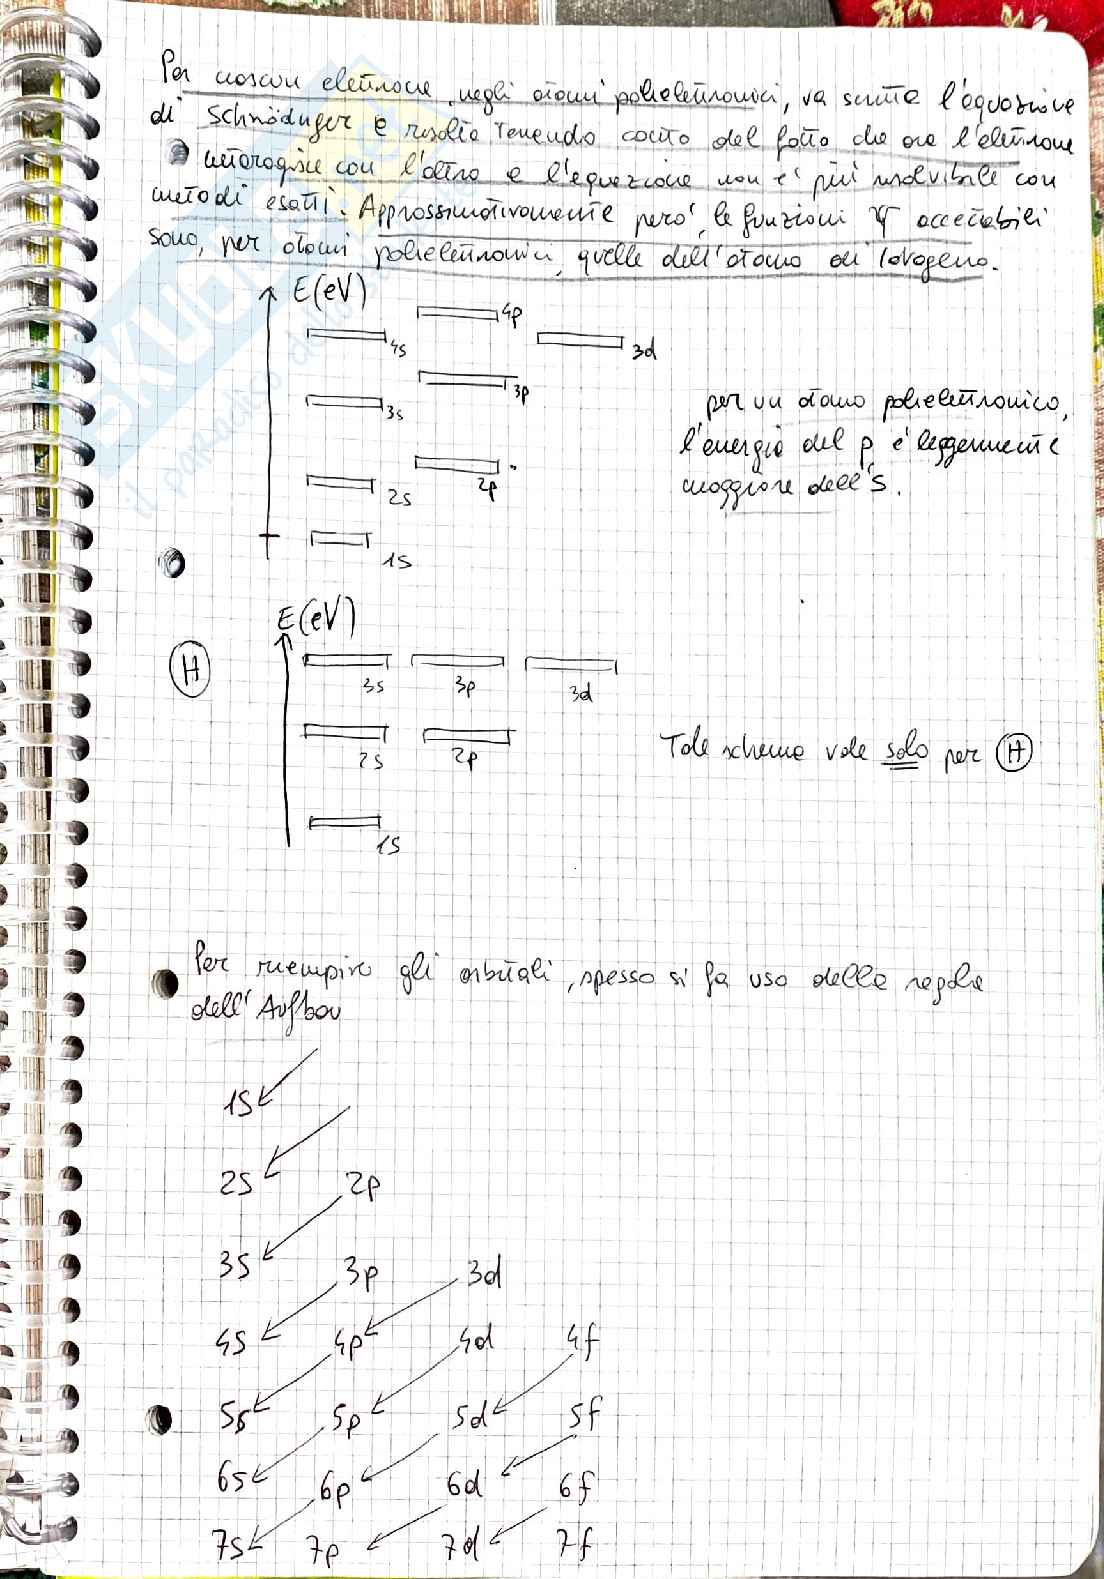 Per ciascun elettrone, negli atomi polielettronici, va scritta l'equazione
di Schrödinger e risolta tenendo conto del fatto che ora l'elettrone
interagisce con l'altro e l'equazione non e' più risolvibile con
metodi esatti. Approssimativamente pero', le funzioni Ψ accettabili
sono, per atomi polielettronici, quelle dell'atomo di idrogeno.
E(eV)
4p
4s
3d
3p
3s
per un atomo polielettronico,
l'energia del p e' leggermente
maggiore dell's.
2p
2s
1s
E(eV)
H
3s 3p 3d
2s 2p
Tale schema vale solo per H
1s
Per riempire gli orbitali, spesso si fa uso delle regole
dell'Aufbau
1s
2s 2p
3s 3p 3d
4s 4p 4d 4f
5s 5p 5d 5f
6s 6p 6d 6f
7s 7p 7d 7f